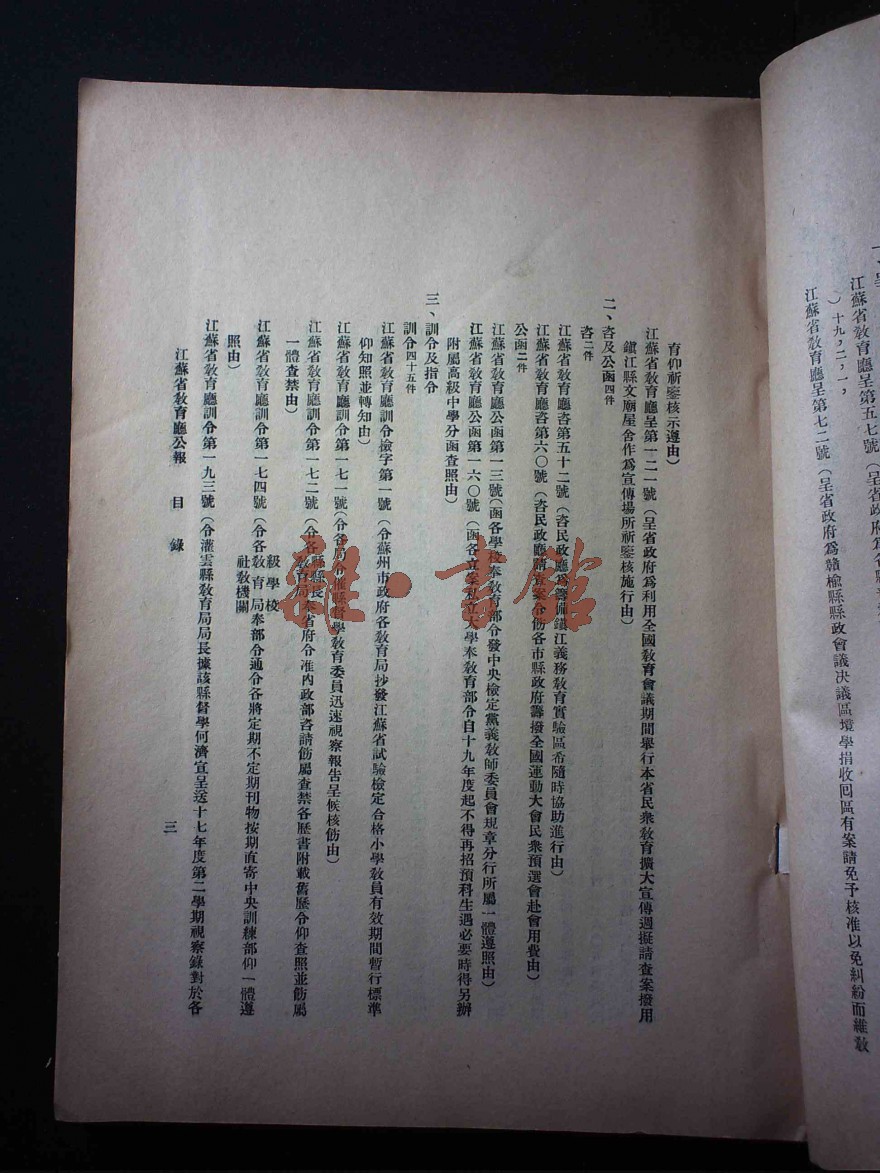 一、呈
江蘇省教育廳呈第五七號（呈省政府為各縣
）十九，二，一，
江蘇省教育廳呈第七二號（呈省政府爲贛榆縣縣政會議決議區境學捐收回區有案請免予核准以免糾紛而維教
育仰祈鑒核示遵由）
江蘇省教育廳呈第一二一號（呈省政府爲利用全國教育會議期間舉行本省民衆教育擴大宣傳週擬請查案撥用
鎭江縣文廟屋舍作爲宣傳場所祈鑒核施行由）
二、咨及公函四件
咨二件
江蘇省教育廳咨第五十二號（咨民政廳爲籌備鎭江義務教育實驗區希隨時協助進行由）
江蘇省教育廳咨第六〇號（咨民政廳請查案令飭各市縣政府籌撥全國運動大會民衆預選會赴會用費由）
公函二件
江蘇省教育廳公函第一三號（函各學校奉教育部令發中央檢定黨義教師委員會規章分行所屬一體遵照由）
江蘇省教育廳公函第一六〇號（函各立案私立大學奉教育部令自十九年度起不得再招預科生遇必要時得另辦
附屬高級中學分函查照由）
三、訓令及指令
訓令四十五件
江蘇省教育廳訓令檢字第一號（令蘇州市政府各教育局抄發江蘇省試驗檢定合格小學教員有效期間暫行標準
仰知照並轉知由）
江蘇省教育廳訓令第一七一號（令各局令催縣督學教育委員迅速視察報告呈候核飭由）
江蘇省教育廳訓令第一七二號（令各縣縣長教育局奉省府令准內政部咨請飭屬查禁各歷書附載舊歷令仰查照並飭屬
一體查禁由）
江蘇省教育廳訓令第一七四號（令各級學校教育局社教機關奉部令通令各將定期不定期刊物按期直寄中央訓練部仰一體遵
照由）
江蘇省教育廳訓令第一九三號（令灌雲縣教育局局長據該縣督學何濟宣呈送十七年度第二學期視察錄對於各
江蘇省教育廳公報 目錄
三
雜·書館